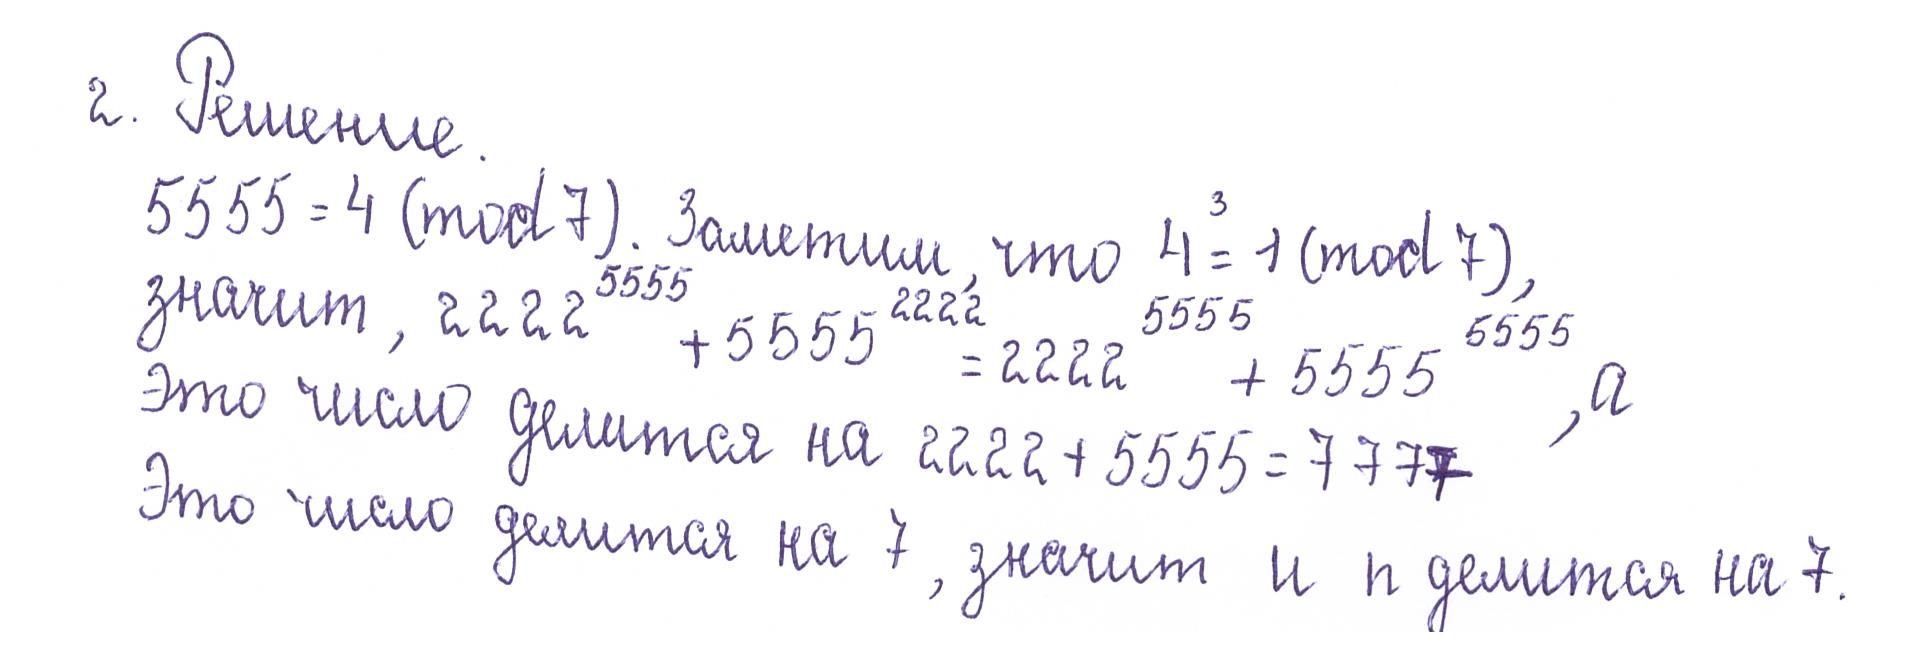 2. Решение.
5555 = 4 (mod 7). Заметим, что 4³ = 1 (mod 7),
значит, 2222⁵⁵⁵⁵ + 5555²²²² = 2222⁵⁵⁵⁵ + 5555⁵⁵⁵⁵, а
Это число делится на 2222 + 5555 = 7777
Это число делится на 7, значит и n делится на 7.